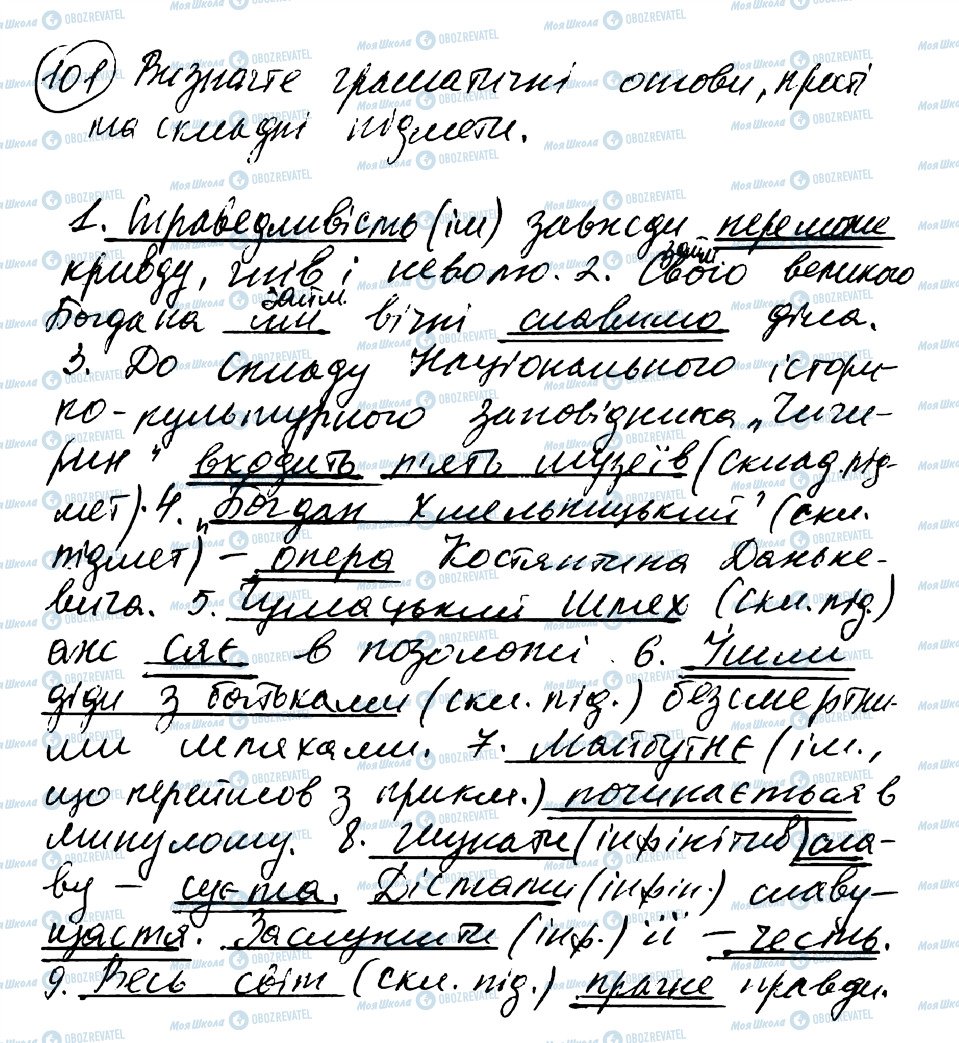 101 Визначте граматичні основи, прості
та складні підмети.
1. Справедливість (ім) завжди переможе
кривду, гнів і неволю. 2. Свого великого
займ.
Богдана ми вічні славимо діла.
займ.
3. До складу Національного істори-
ко-культурного заповідника „Чиги-
рин“ входить п'ять музеїв (склад. під-
мет). 4. „Богдан Хмельницький“ (скл.
підмет) – опера Костянтина Даньке-
вича. 5. Чумацький Шлях (скл. під.)
аж сяє в позолоті. 6. Йшли
діди з батьками (скл. під.) безсмертни-
ми шляхами. 7. Майбутнє (ім.,
що перейшов з прикм.) починається в
минулому. 8. Шукати (інфінітив) сла-
ву – суєта. Дістати (інфін.) славу –
щастя. Заслужити (інф.) її – честь.
9. Весь світ (скл. під.) прагне правди.